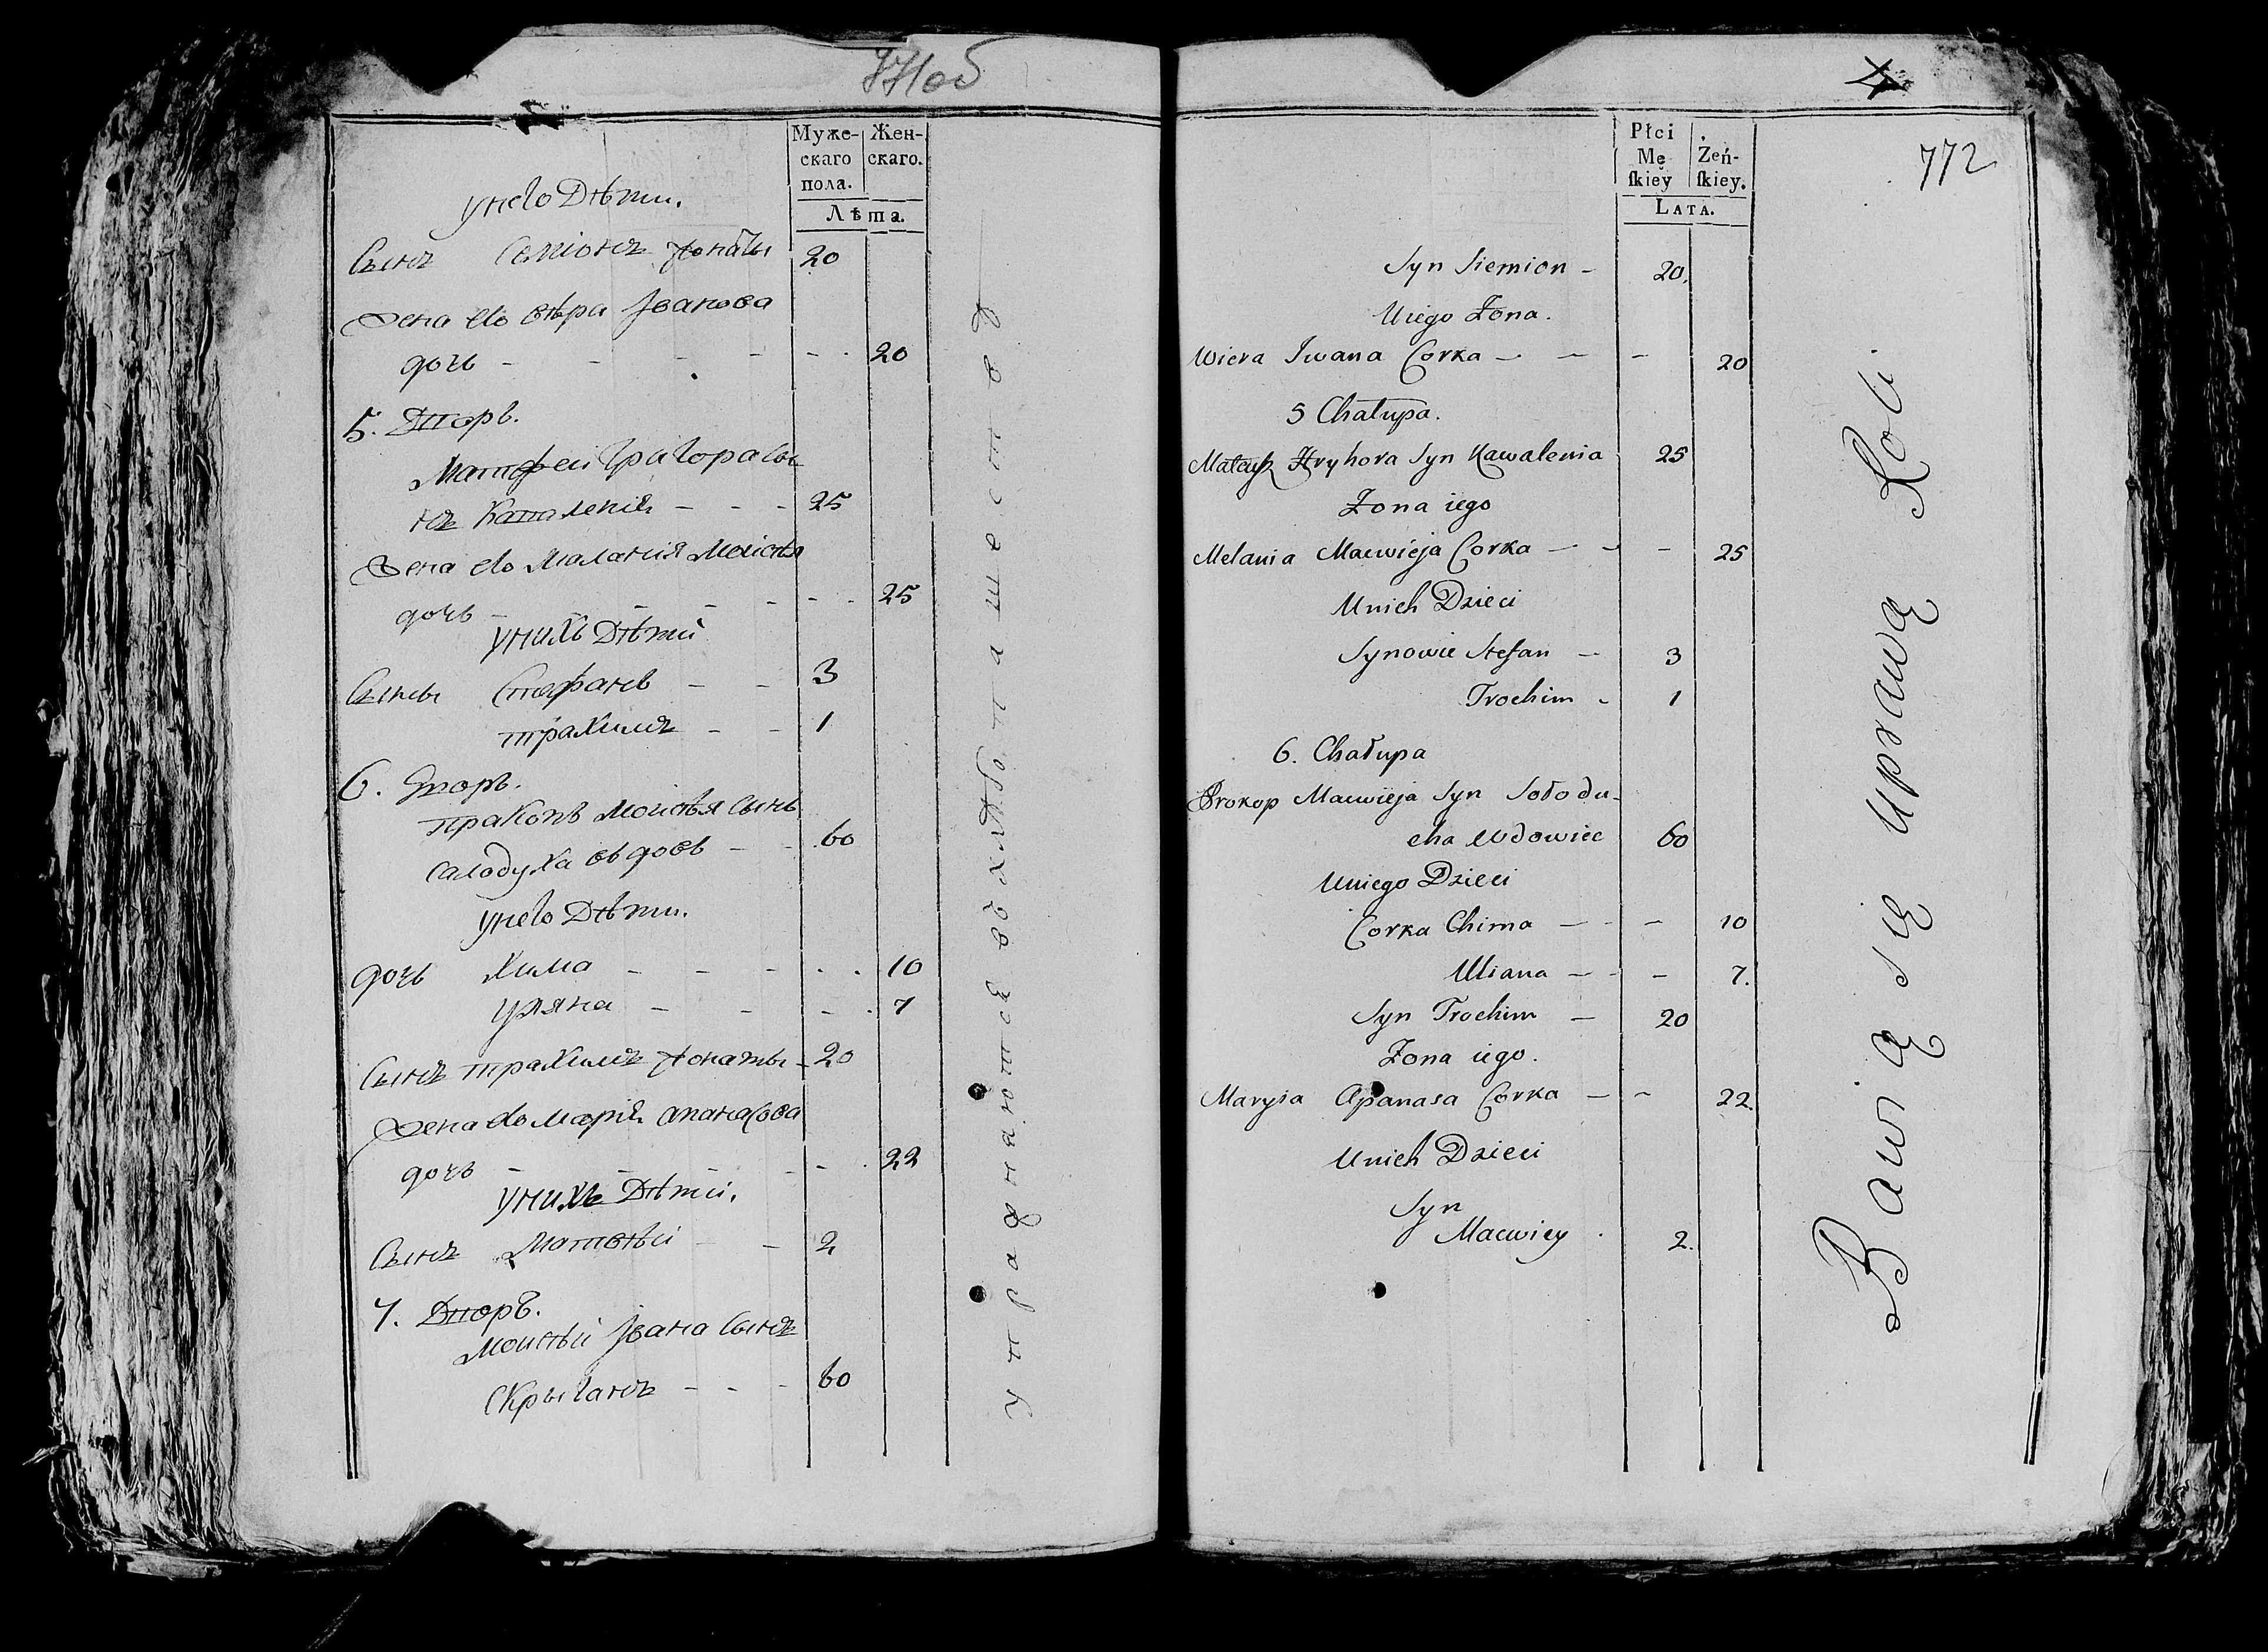 771об
Муже-
скаго
пола.
Жен-
скаго.
Лѣта.
у него Дѣти.
Сынъ Семіонъ Жонаты 20
Жена его вѣра Јванова
дочь - - - - - - 20
5. Дворъ.
Матфеи Григора сы
нъ Каваленія - - - 25
Жена его Маланія Моисѣя
дочь - - - - - - 25
у нихъ Дѣти
Сыны Стефанъ - - 3
трахимъ - - 1
6. Дворъ.
пракопъ Моисѣя сынъ
салодуха вдовъ - - 60
у него Дѣти.
дочь Хима - - - - - 10
уляна - - - - 7
Сынъ трахимъ Жонаты - 20
Жена его марія апанасова
дочь - - - - - 22
у нихъ Дѣти.
Сынъ Матвѣи - - 2
7. Дворъ.
Моисѣи Јвана Сынъ
Скрыганъ - - - 60
упражнаются въ хлѣбопашествѣ
4
772
Płci
Mę
ſkiey
Żeń-
ſkiey.
LATA.
Syn Siemion - 20.
Uiego Żona.
Wiera Iwana Corka - - - 20
5 Chałupa.
Mateusz Hryhora Syn Kawalenia 25
Żona iego
Melania Macwieja Corka - - - 25
Unich Dzieci
Synowie Stefan - 3
Trochim - 1
6. Chałupa
Prokop Macwieja Syn Sołodu-
cha wdowiec 60
Uniego Dzieci
Corka Chima - - - 10
Uliana - - - 7.
Syn Trochim - 20
Żona iego.
Marysia Apanasa Corka - - 22.
Unich Dzieci
Syn
Macwiey . 2.
Bawią się Uprawą Roli.